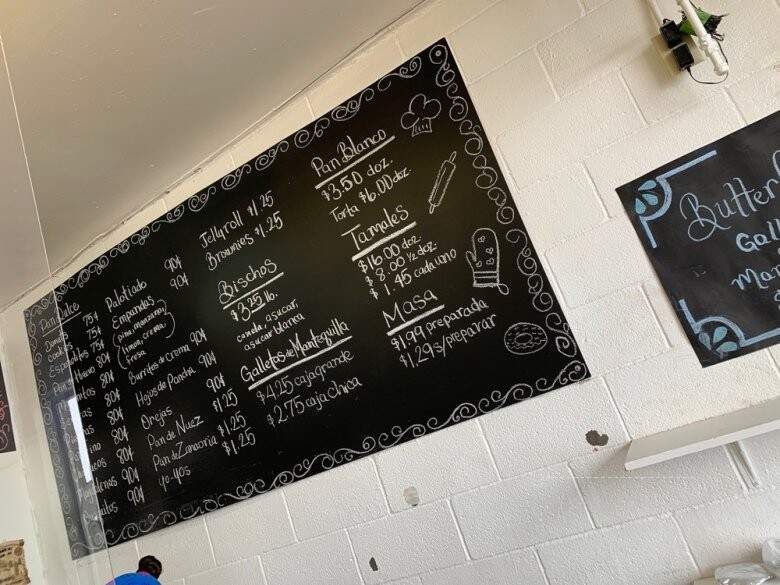 Pan Dulce
Donas 75¢
cookies 75¢
Espanolitas 75¢
Pan Huevo 80¢
80¢
80¢
80¢
80¢
80¢
90¢
90¢
Palotiado 90¢
Empanadas 90¢
(piña, manzana,
limon, crema)
fresa
Burritos de Crema 90¢
Hojas de Pancha 90¢
Orejas 90¢
Pan de Nuez $1.25
Pan de Zanaoria $1.25
yo-yos $1.25
Jellyroll $1.25
Brownies $1.25
Bischos
$3.25 lb.
canela, asucar,
asucar blanca
Galletas de Mantequilla
$4.25 caja grande
$2.75 caja chica
Pan Blanco
$3.50 doz.
Torta $6.00 doz.
Tamales
$16.00 doz
$8.00 ½ doz.
$1.45 cada uno
Masa
$1.99 preparada
$1.29 s/preparar